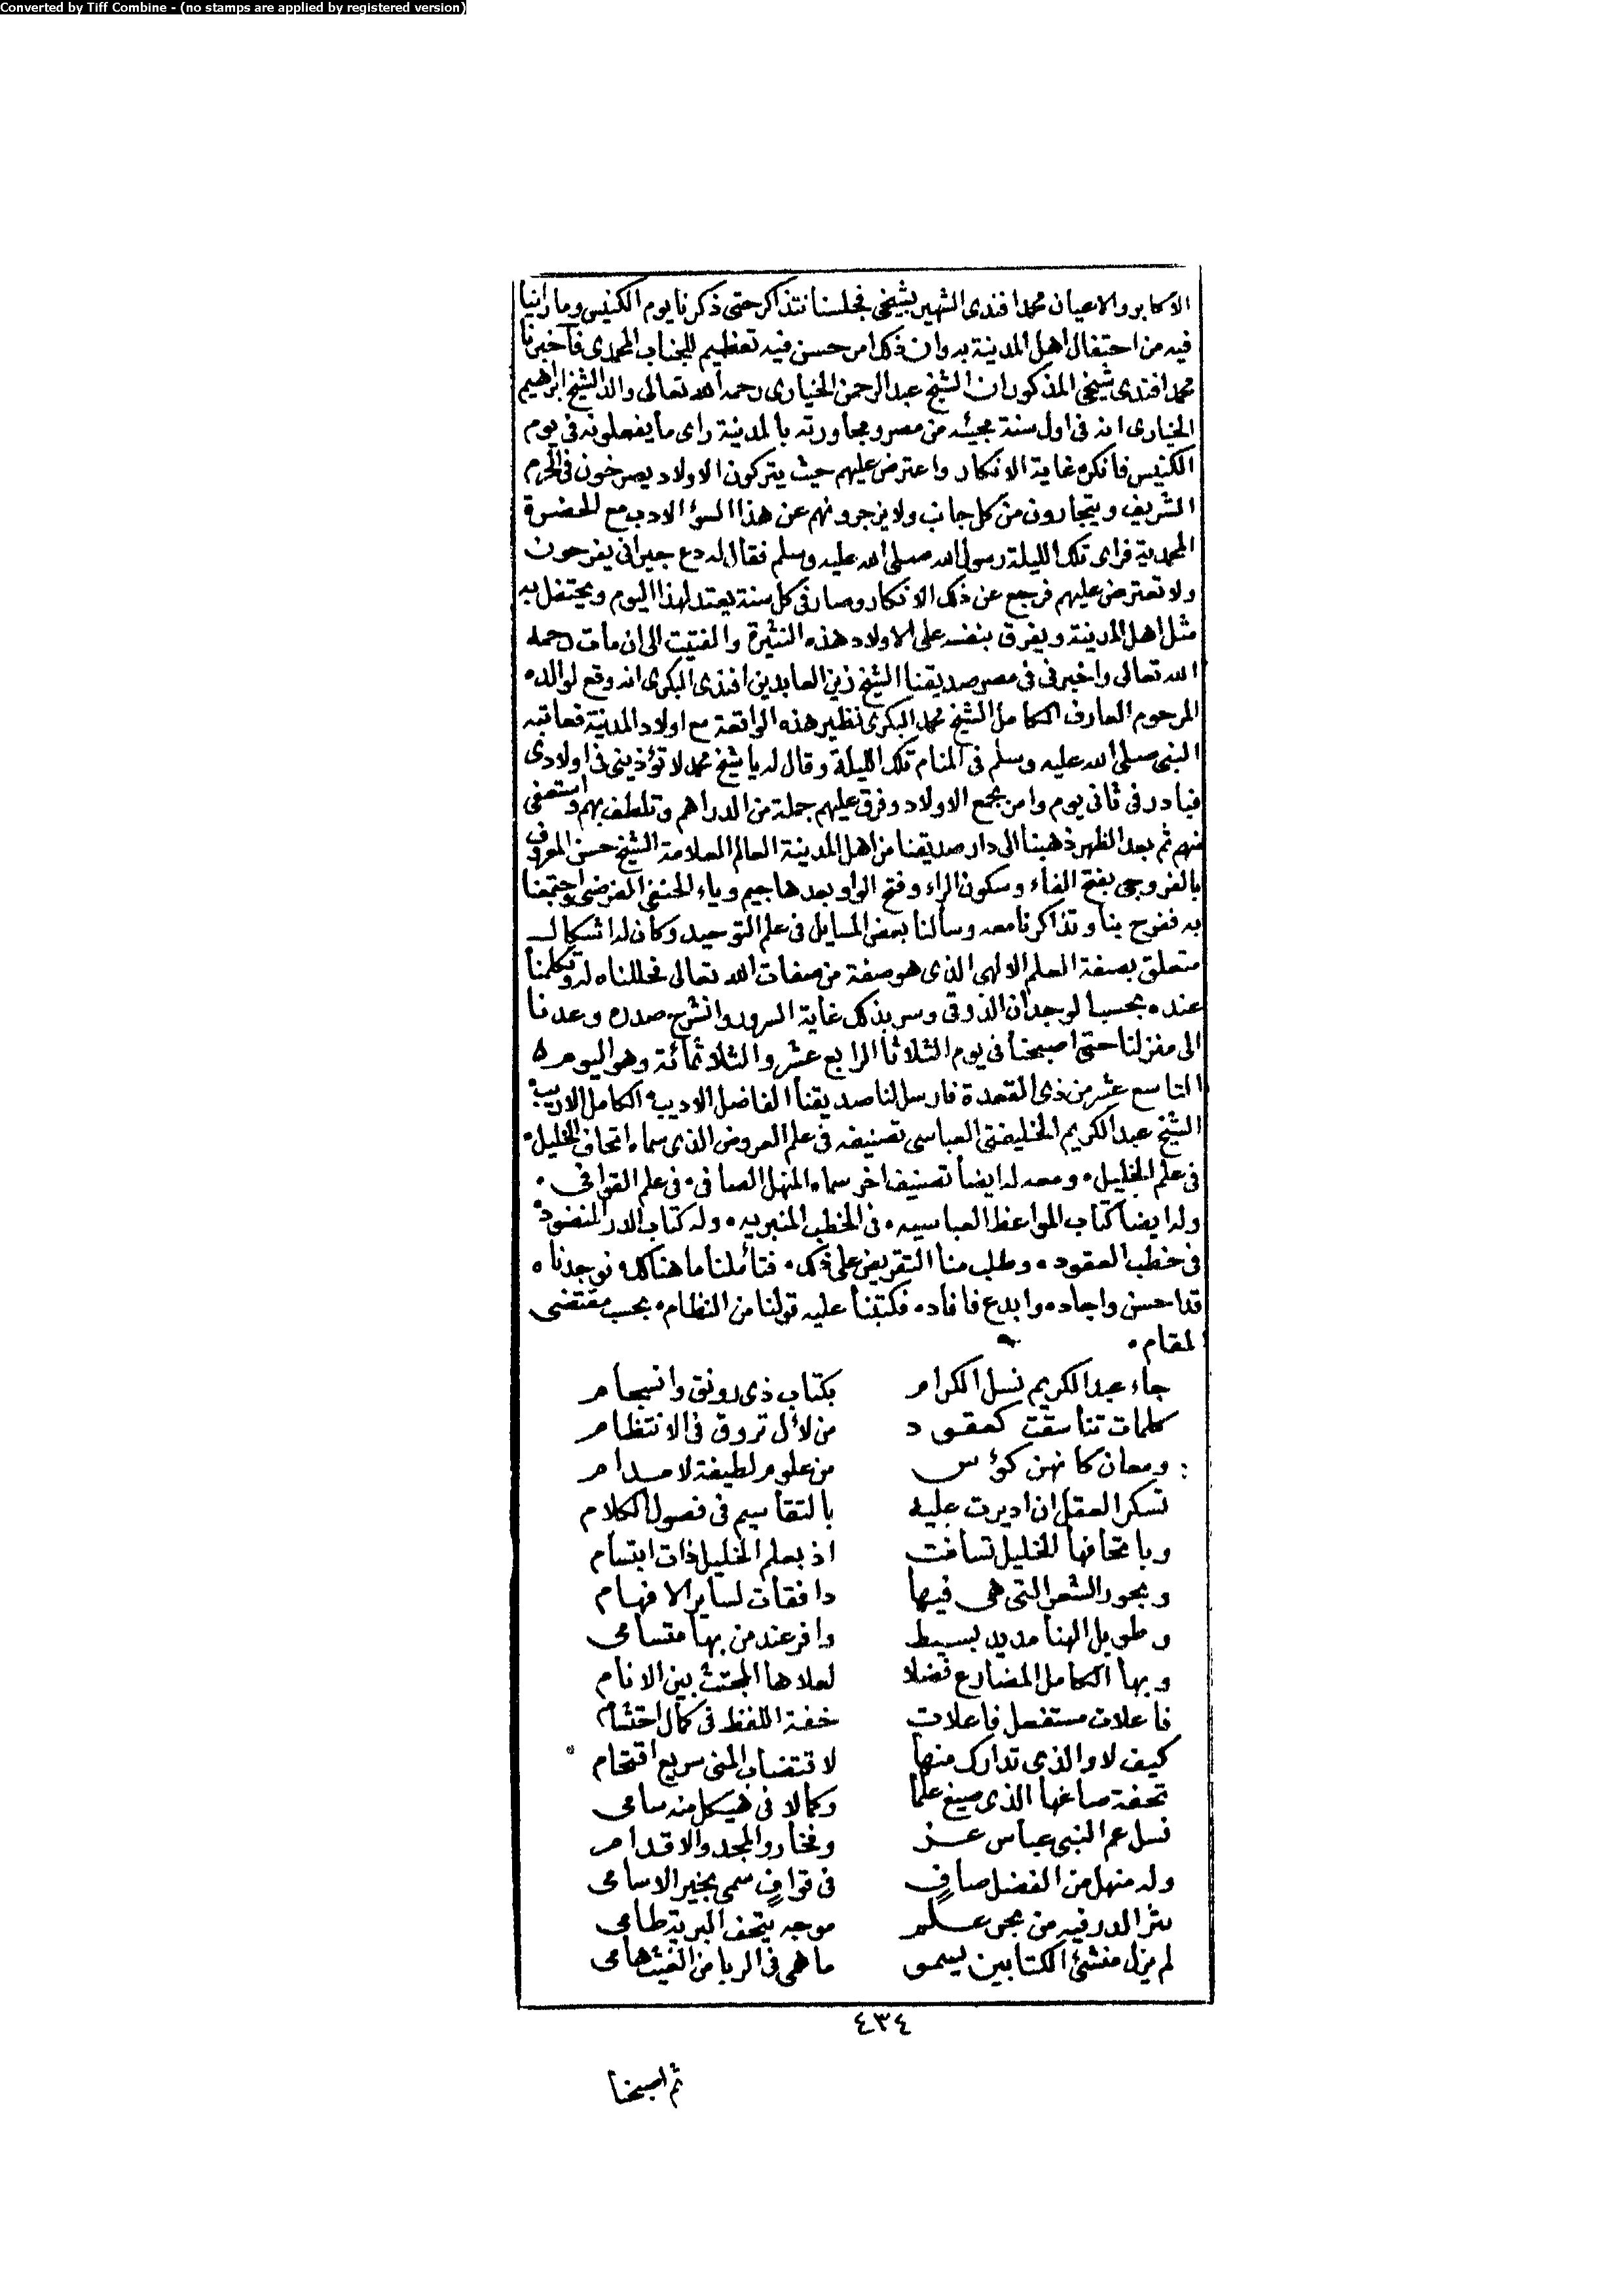 Converted by Tiff Combine - (no stamps are applied by registered version)
الاكابر والاعيان محمد افندى الشهير بشيخى فجلسنا نتذاكر حتى ذكرنا يوم الكنيس وما راينا
فيه من احتفال اهل المدينة به وان ذلك امر حسن فيه تعظيم للجناب المحمدى فاخبرنا
محمد افندى شيخى المذكور ان الشيخ عبد الرحمن الخيارى رحمه الله تعالى والد الشيخ ابرهيم
الخيارى انه فى اول سنة مجيئه من مصر ومجاورته بالمدينة راى ما يفعلونه فى يوم
الكنيس فانكره غاية الانكار واعترض عليهم حيث يتركون الاولاد يصرخون فى الحرم
الشريف ويتجارون من كل جانب ولا يزجرونهم عن هذا السؤ الادب مع الحضرة
المحمدية فراى تلك الليلة رسول الله صلى الله عليه وسلم فقال له دع جيرانى يفرحون
ولا تعترض عليهم فرجع عن ذلك الانكار وصار فى كل سنة يعتد لهذا اليوم ويحتفل به
مثل اهل المدينة ويفرق بنفسه على الاولاد هذه النثيرة والفتيت الى ان مات رحمه
الله تعالى واخبرنى فى مصر صديقنا الشيخ زين العابدين افندى البكرى انه وقع لوالده
المرحوم العارف الكامل الشيخ محمد البكرى نظير هذه الواقعة مع اولاد المدينة فعاتبه
النبى صلى الله عليه وسلم فى المنام تلك الليلة وقال له يا شيخ محمد لا تؤذينى فى اولادى
فبادر فى ثانى يوم وامر بجمع الاولاد وفرق عليهم جملة من الدراهم وتلطف بهم واستعفى
منهم ثم بعد الظهر ذهبنا الى دار صديقنا من اهل المدينة العالم العلامة الشيخ حسن المعروف
بالفروجى بفتح الفاء وسكون الراء وفتح الواو بعدها جيم وياء الحنفى الفرضى واجتمعنا
به ففرح بنا وتذاكرنا معه وسألنا بعض المسايل فى علم التوحيد وكان له اشكال
متعلق بصفة العلم الالهى الذى هو صفة من صفات الله تعالى فحللناه له وتكلمنا
عنده بحسب الوجدان الذوقى وسر بذلك غاية السرور وانشرح صدره وعدنا
الى منزلنا حتى اصبحنا فى يوم الثلاثا الرابع عشر والثلاثمائة وهو اليوم
التاسع عشر من ذى القعدة فارسل لنا صديقنا الفاضل الاديب الكامل الاريب
الشيخ عبد الكريم الخليفتى العباسى تصنيفه فى علم العروض الذى سماه اتحاف الخليل
فى علم الخليل ومعه له ايضا تصنيف اخر سماه المنهل الصافى فى علم القوافى
وله ايضا كتاب المواعظ العباسيه فى الخطب المنبريه وله كتاب الدر المنضود
فى خطب العقود وطلب منا التقريض على ذلك فتأملنا ما هنالك فوجدناه
قد احسن واجاد وابدع فافاد فكتبنا عليه قولنا من النظام بحسب مقتضى
المقام
جاء عبد الكريم نسل الكرام بكتاب ذى رونق وانسجام
كلمات تناسقت كعقود من لآل تروق فى الانتظام
ومعان كانهن كؤس من علوم لطيفة لا مدام
تسكر العقل ان اديرت عليه بالتقاسيم فى فصول الكلام
وباتحافها للخليل تسامت اذ بعلم الخليل ذات ابتسام
وبحور الشعر التى هى فيها دافقات لساير الافهام
وطويل الهنا مديد بسيط وافر عند من بها متسامى
وبها الكامل المضارع فضلا لعلاها المجتث بين الانام
فاعلات مستفعل فاعلات خفة اللفظ فى كمال احتشام
كيف لا والذى تدارك منها لاقتضاب المنى سريع اقتحام
تحفة صاغها الذى صيغ علما وكمالا فى هيكل منه سامى
نسل عم النبى عباس عز وفخار والمجد والاقدام
وله منهل من الفضل صافٍ فى قوافٍ سمى بخير الاسامى
نثر الدر فيه من بحر علم موجه يتحف البرية طامى
لم يزل منشئ الكتابين يسمو ما همى فى الربا من الغيث هامى
٤٣٤
ثم اصبحنا